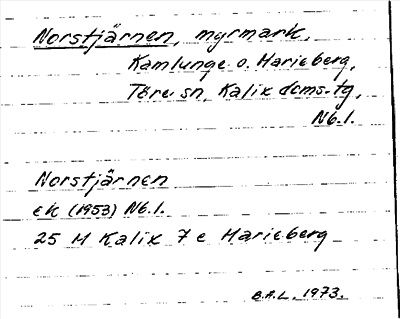 Norstjärnen, myrmark,
Kamlunge o. Marieberg,
Töre sn, Kalix dcms.tg,
Nb.l.
Norstjärnen
ek (1953) Nb.l.
25 M Kalix 7 e Marieberg
B.A.L. 1973.